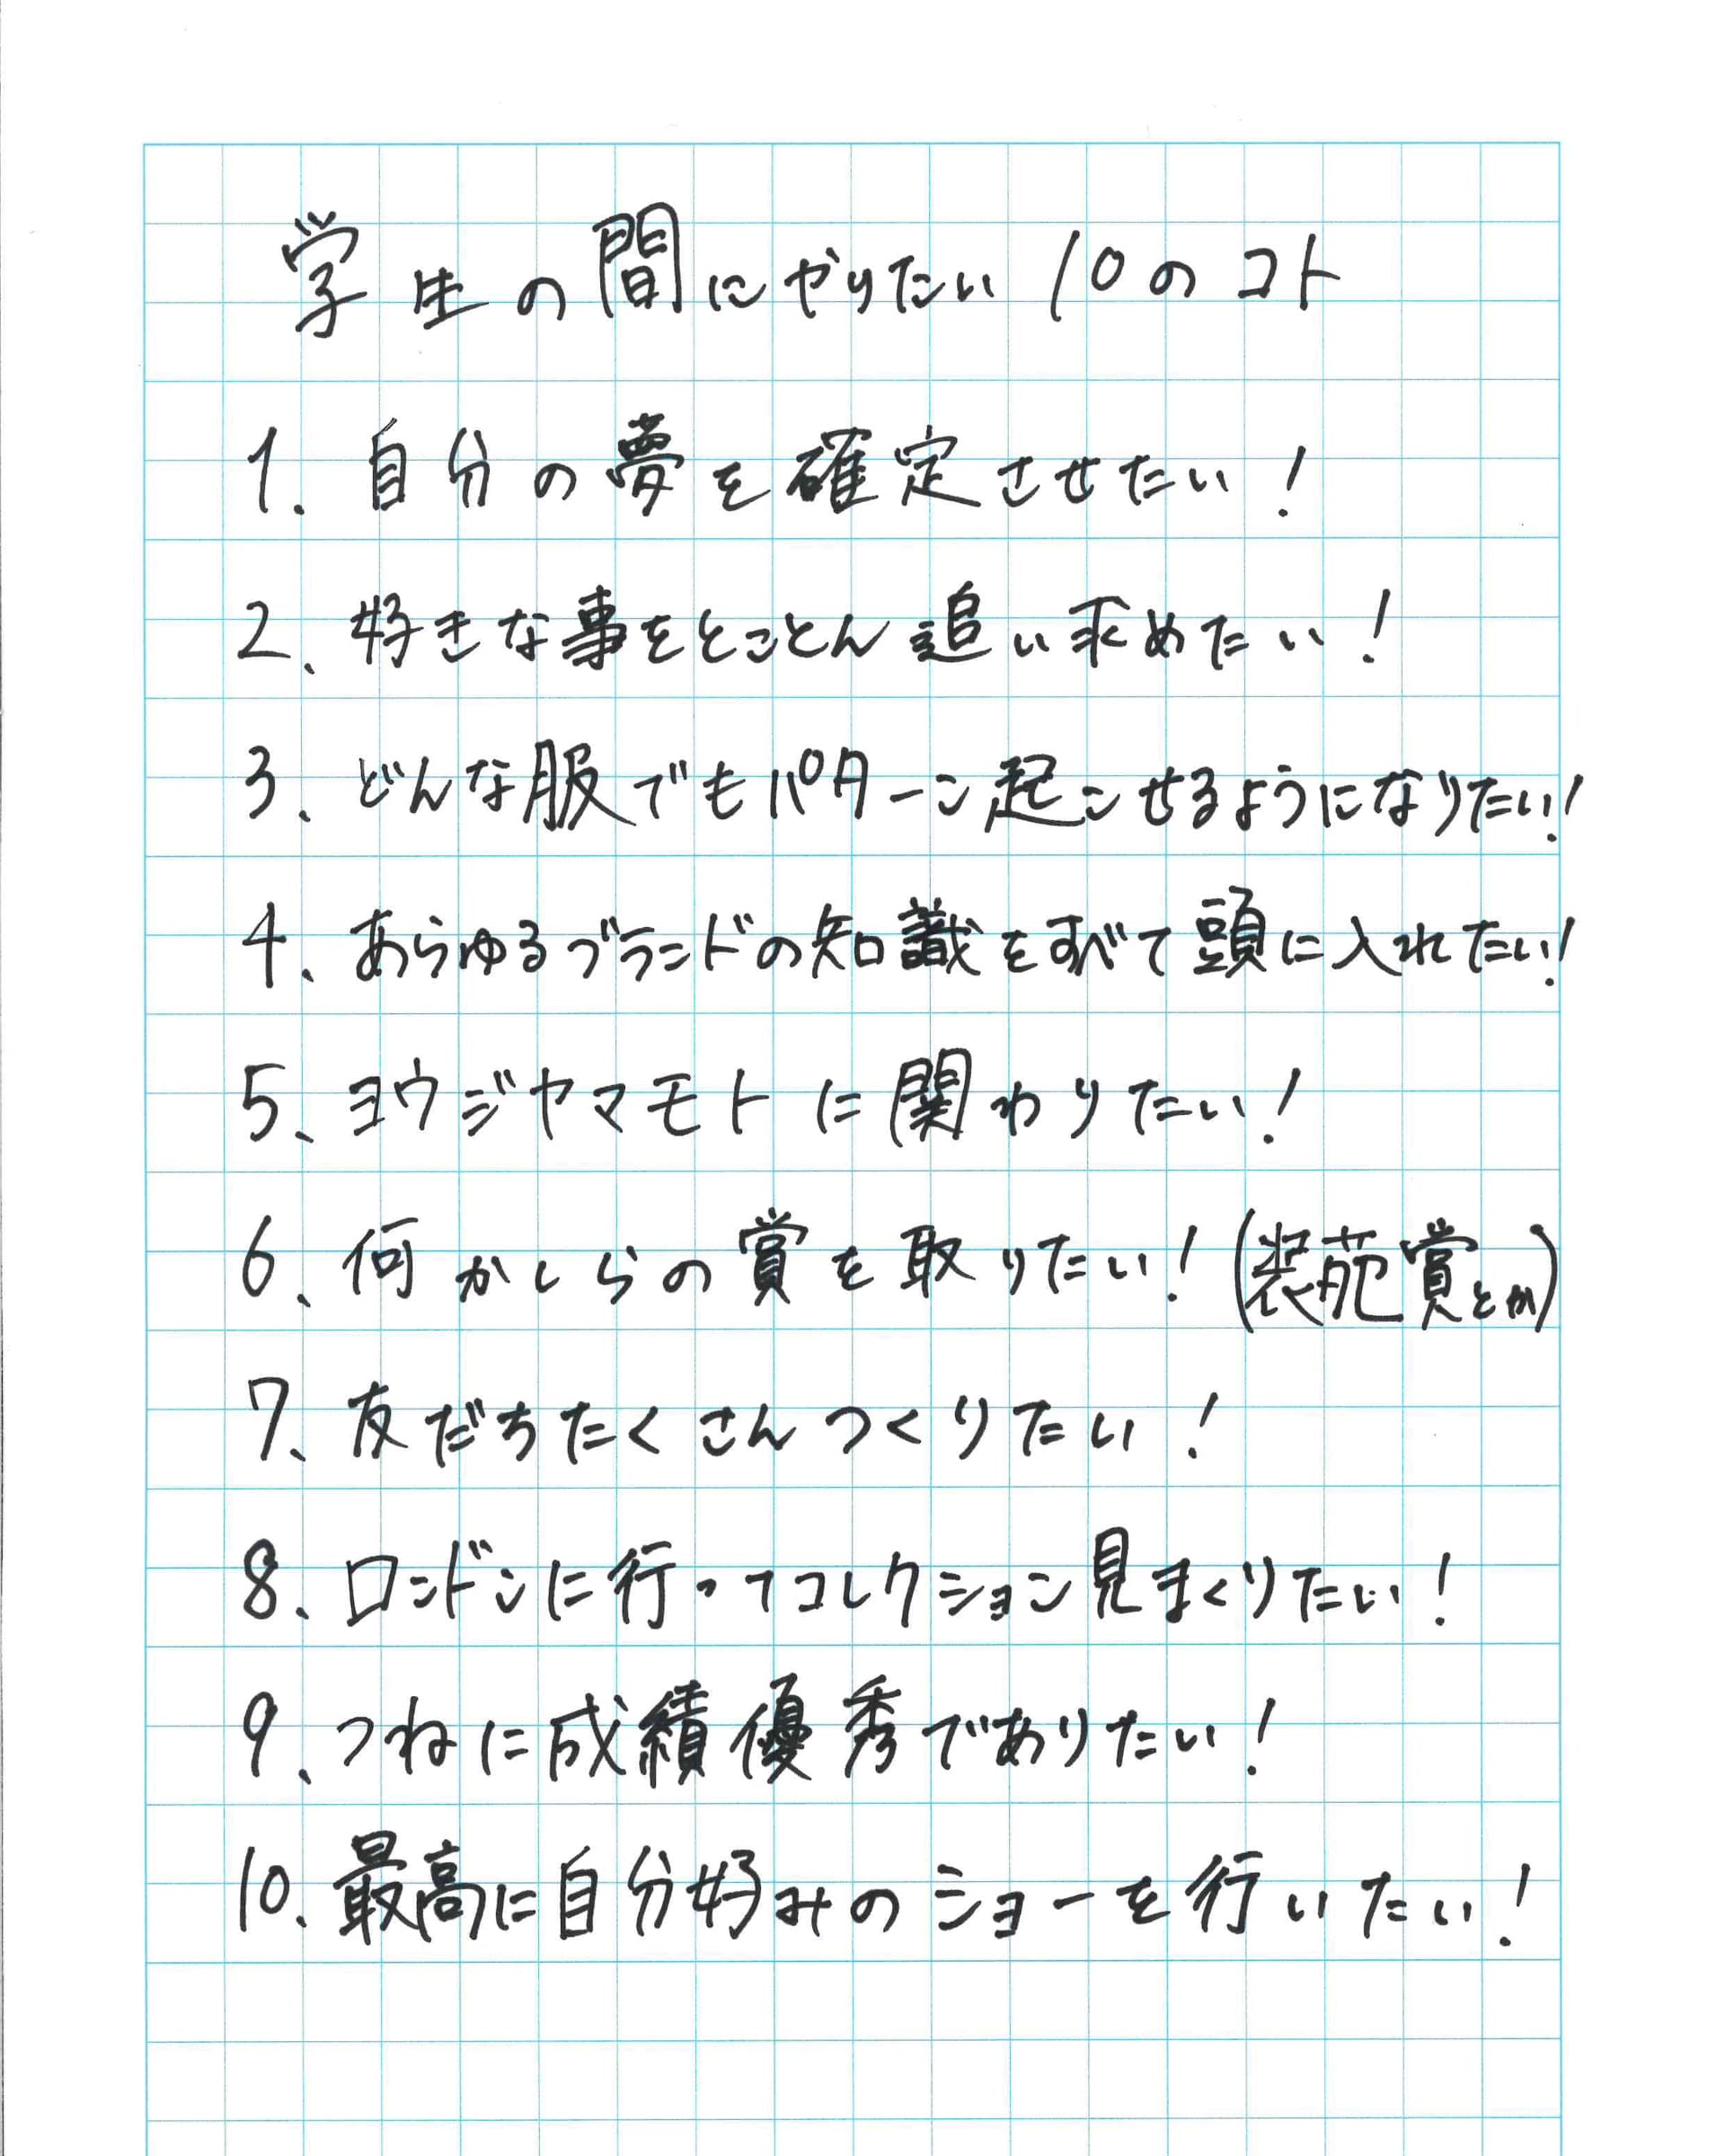 学生の間にやりたい10のコト
1. 自分の夢を確定させたい!
2、好きな事をとことん追い求めたい!
3、どんな服でもパターン起こせるようになりたい!
4、あらゆるブランドの知識をすべて頭に入れたい!
5、ヨウジヤマモトに関わりたい!
6、何かしらの賞を取りたい!(装苑賞とか)
7、友だちたくさんつくりたい!
8、ロンドンに行ってコレクション見まくりたい!
9、つねに成績優秀でありたい!
10、最高に自分好みのショーを行いたい!